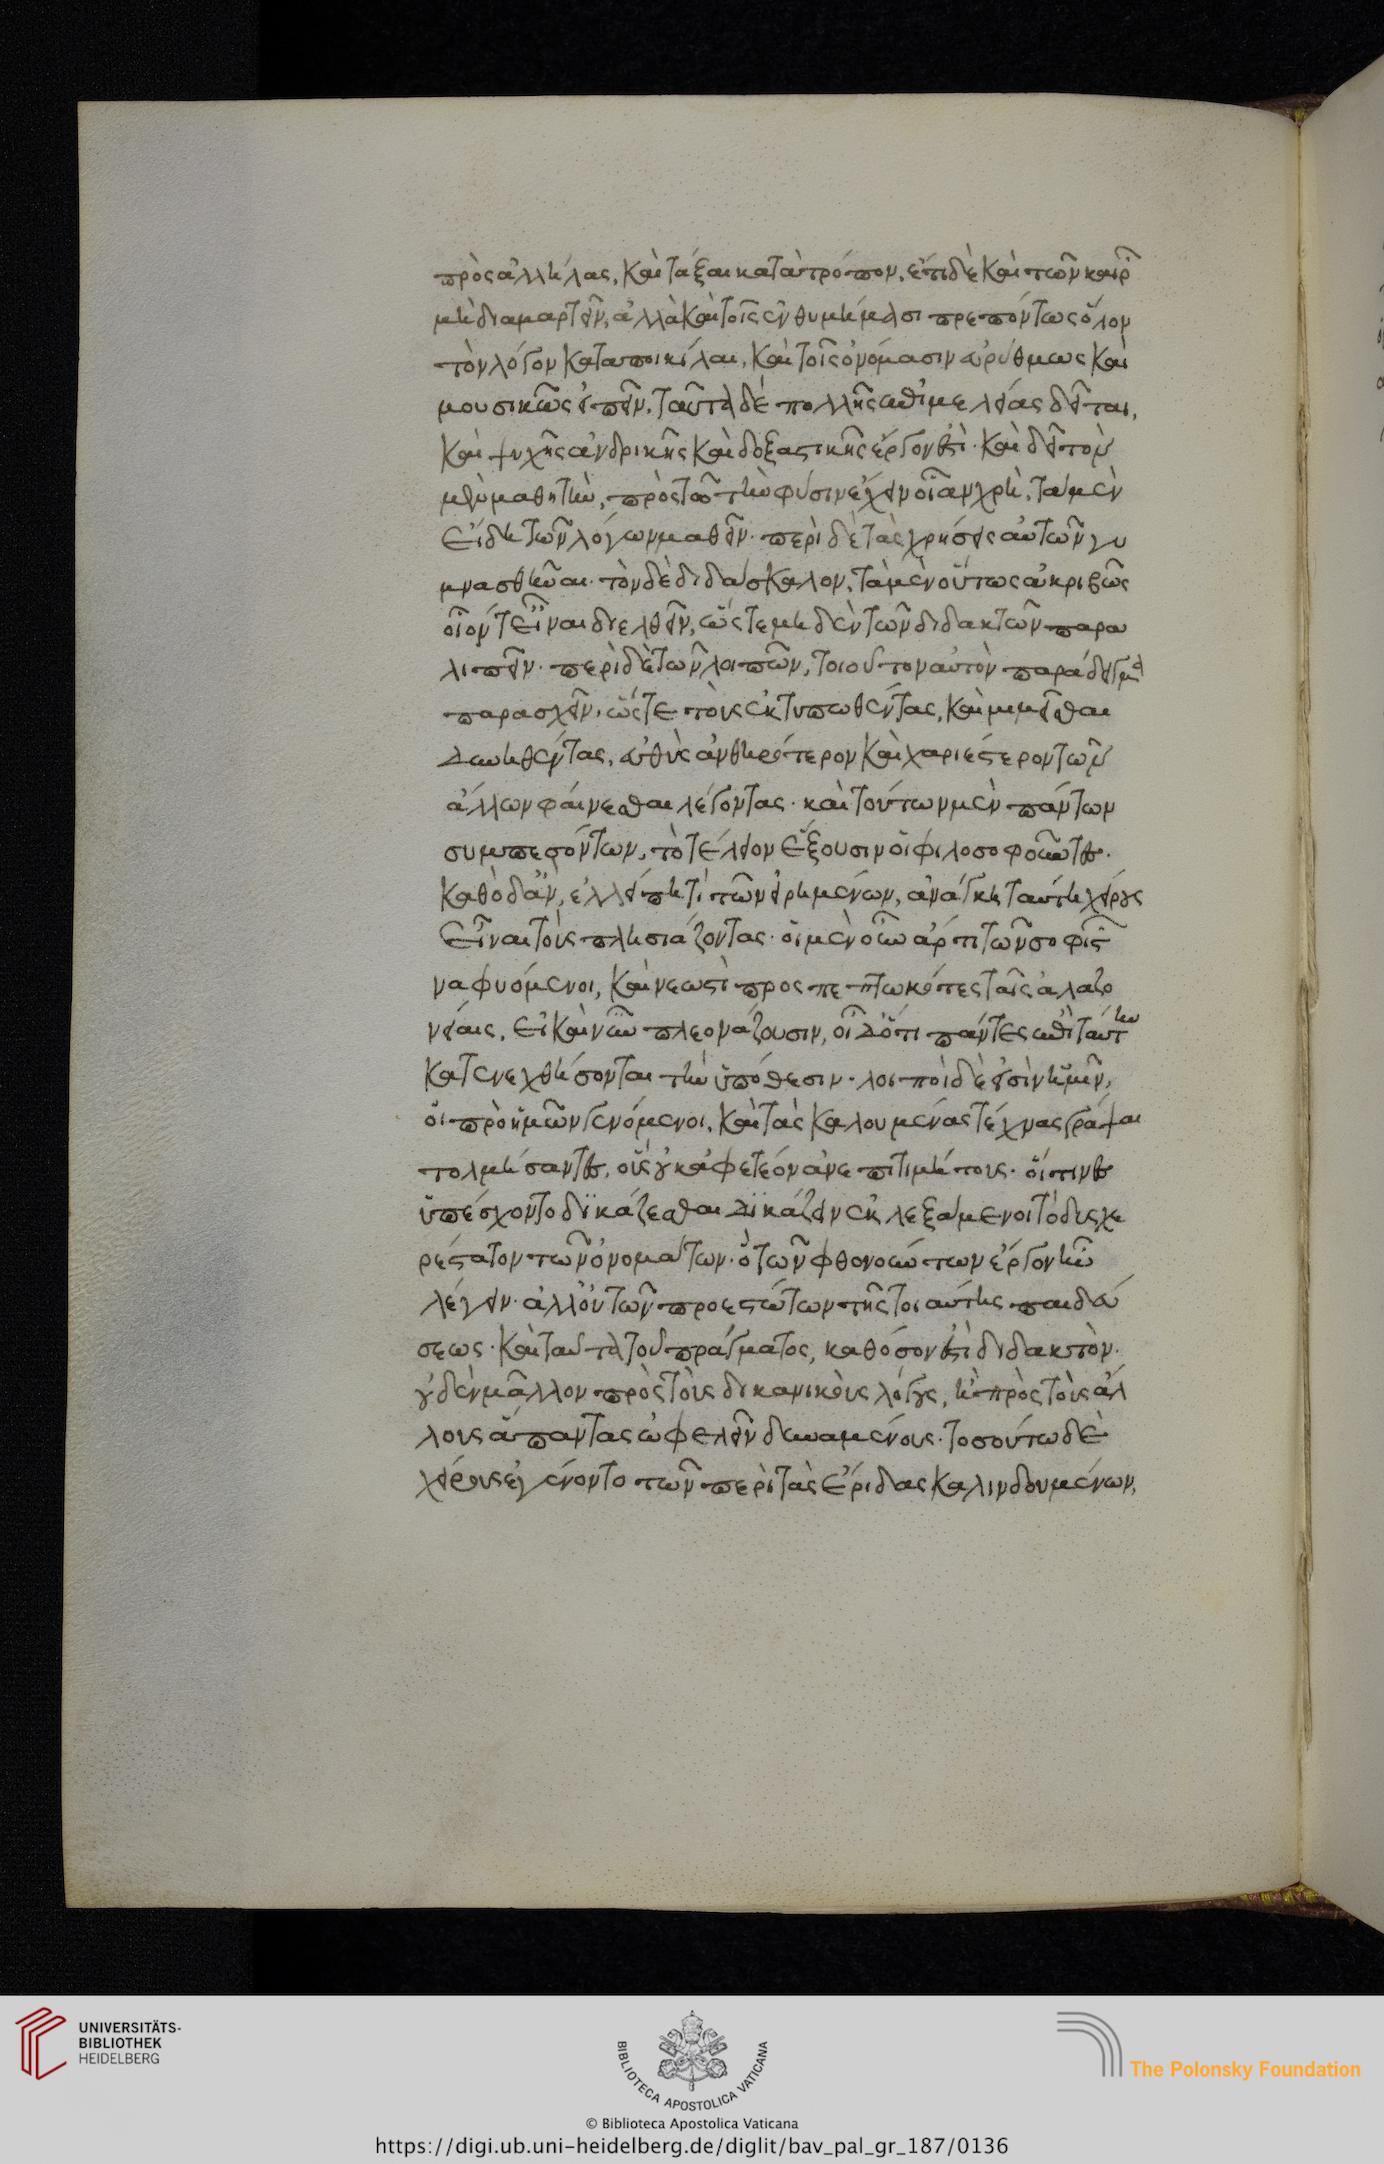 πρὸς ἀλλήλας, καὶ τάξαι κατὰ τρόπον, ἔτι δὲ καὶ τῶν καιρῶν
μὴ διαμαρτεῖν, ἀλλὰ καὶ τοῖς ἐνθυμήμασι πρεπόντως ὅλον
τὸν λόγον καταποικίλαι, καὶ τοῖς ὀνόμασιν εὐρύθμως καὶ
μουσικῶς εἰπεῖν, ταῦτα δὲ πολλῆς ἐπιμελείας δεῖται,
καὶ ψυχῆς ἀνδρικῆς καὶ δοξαστικῆς ἔργον ἐστί· καὶ δεῖ τὸν
μὲν μαθητὴν, πρὸς τῷ τὴν φύσιν ἔχειν οἵαν χρὴ, τὰ μὲν
εἴδη τῶν λόγων μαθεῖν· περὶ δὲ τὰς χρήσεις αὐτῶν γυ
μνασθῆναι· τὸν δὲ διδάσκαλον, τὰ μὲν οὕτως ἀκριβῶς
οἷόν τ εἶναι διελθεῖν, ὥστε μηδὲν τῶν διδακτῶν παρα
λιπεῖν· περὶ δὲ τῶν λοιπῶν, τοιοῦτον αὑτὸν παράδειγμα
παρασχεῖν, ὥστε τοὺς ἐκτυπωθέντας, καὶ μιμεῖσθαι
δυνηθέντας, εὐθὺς ἀνθηρότερον καὶ χαριέστερον τῶν
ἄλλων φαίνεσθαι λέγοντας· καὶ τούτων μὲν πάντων
συμπεσόντων, τὸ τέλειον ἕξουσιν οἱ φιλοσοφοῦντες.
καθὸ δ' ἂν, ἐλλείπῃ τί τῶν εἰρημένων, ἀνάγκη ταύτῃ χείρους
εἶναι τοὺς πλησιάζοντας· οἱ μὲν οὖν ἄρτι τῶν σοφιστῶν
ναφυόμενοι, καὶ νεωστὶ προσπεπτωκότες ταῖς ἀλαζο
νείαις, εἰ καὶ νῦν πλεονάζουσιν, οἶδ' ὅτι πάντες ἐπὶ ταύτην
κατενεχθήσονται τὴν ὑπόθεσιν· λοιποὶ δὲ εἰσὶν ἡμῖν,
οἱ πρὸ ἡμῶν γενόμενοι, καὶ τὰς καλουμένας τέχνας γράψαι
τολμήσαντες, οὓς οὐκ ἀφετέον ἀνεπιτιμήτους· οἵτινες
ὑπέσχοντο δϊκάζεσθαι δϊκάζειν ἐκλεξάμενοι τὸ δυσχε
ρέστατον τῶν ὀνομάτων· ὃ τῶν φθονούντων ἔργον ἦν
λέγειν· ἀλλ' οὐ τῶν προεστώτων τῆς τοιαύτης παιδεύ
σεως· καὶ ταῦτα τοῦ πράγματος, καθόσον ἐστὶ διδακτὸν·
οὐδὲν μᾶλλον πρὸς τοὺς δικανικοὺς λόγους, ἢ πρὸς τοὺς ἄλ
λους ἅπαντας ὠφελεῖν δυναμένους· τοσούτω δὲ
χείρους ἐγένοντο τῶν περὶ τὰς ἔριδας καλινδουμένων,
UNIVERSITÄTS-
BIBLIOTHEK
HEIDELBERG
BIBLIOTECA APOSTOLICA VATICANA
The Polonsky Foundation
© Biblioteca Apostolica Vaticana
https://digi.ub.uni-heidelberg.de/diglit/bav_pal_gr_187/0136